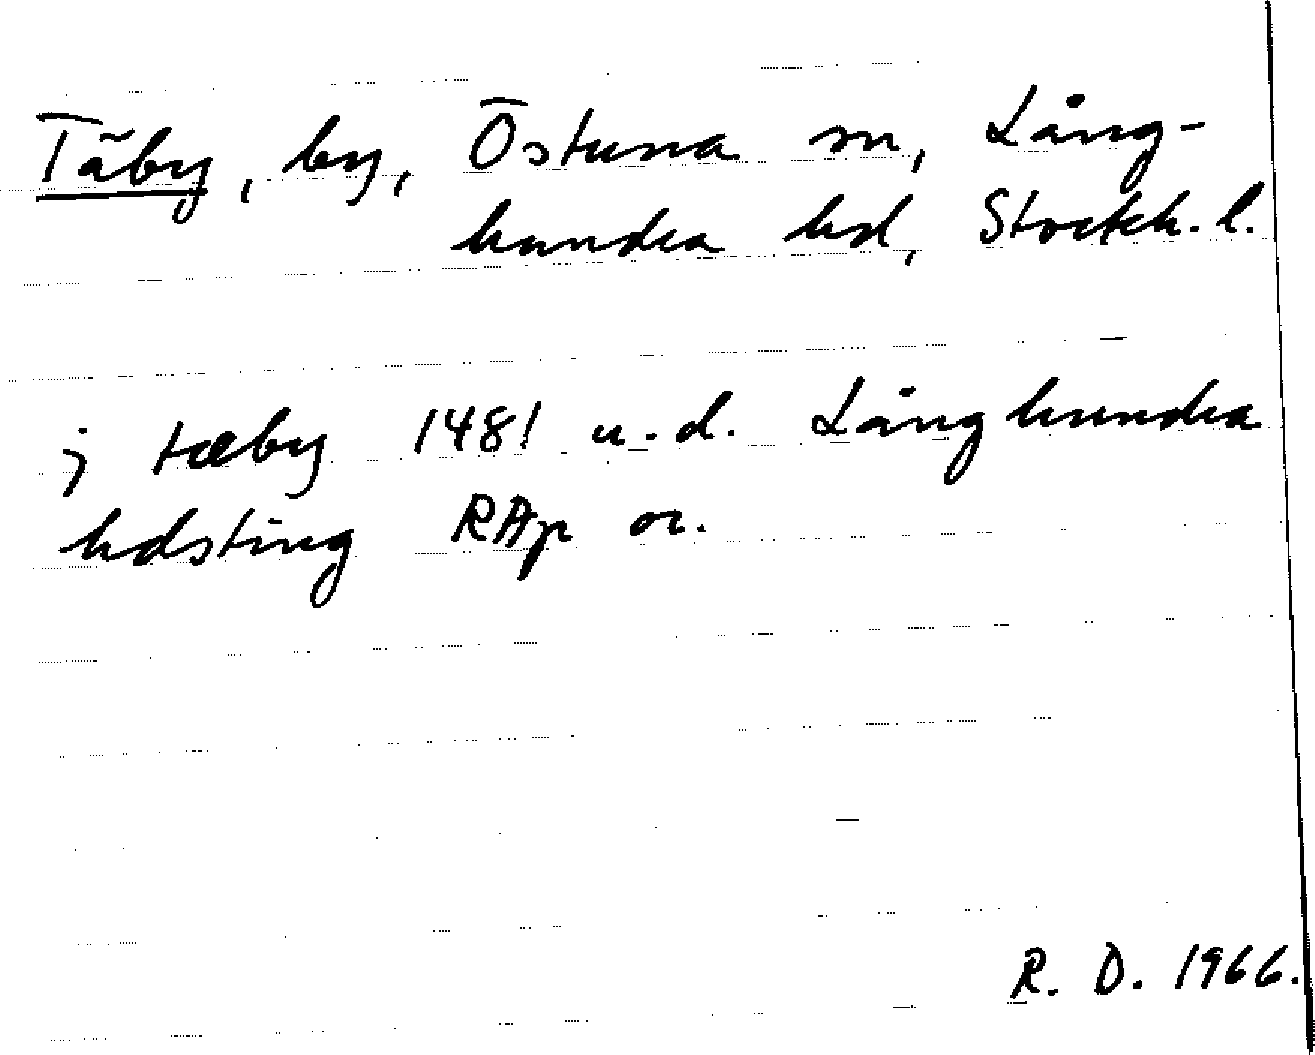 Täby, by, Östuna sn, Lång-
hundra hd, Stockh. l.
j tæby 1481 u.d. Långhundra
hdsting RAp or.
R. D. 1966.